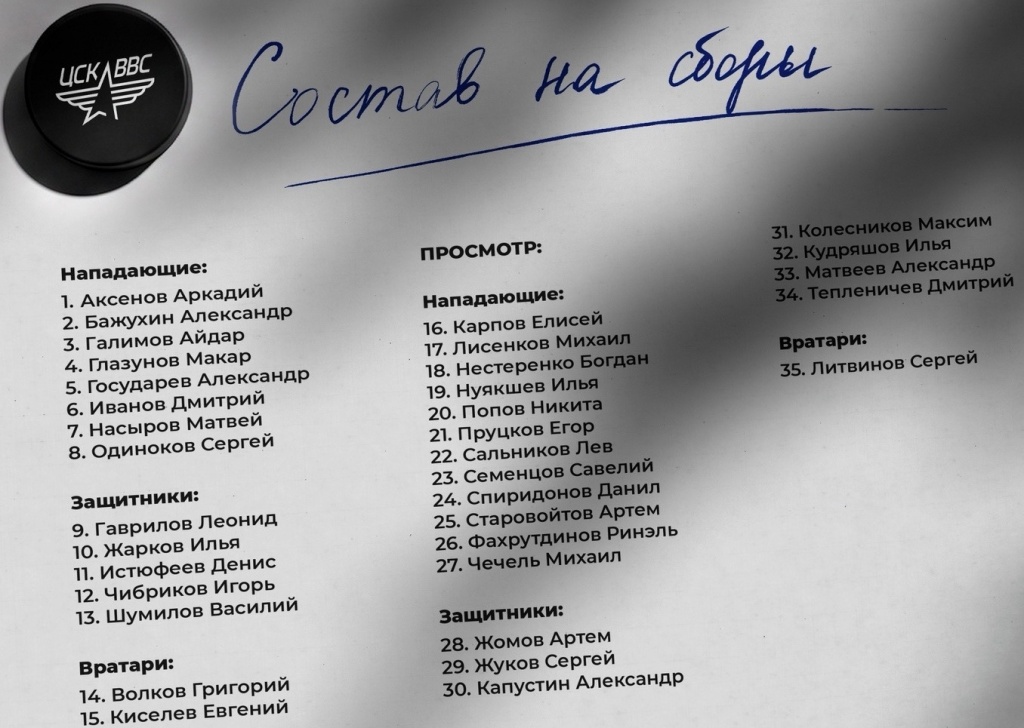 ЦСК ВВС
Состав на сборы
Нападающие:
1. Аксенов Аркадий
2. Бажухин Александр
3. Галимов Айдар
4. Глазунов Макар
5. Государев Александр
6. Иванов Дмитрий
7. Насыров Матвей
8. Одиноков Сергей
Защитники:
9. Гаврилов Леонид
10. Жарков Илья
11. Истюфеев Денис
12. Чибриков Игорь
13. Шумилов Василий
Вратари:
14. Волков Григорий
15. Киселев Евгений
ПРОСМОТР:
Нападающие:
16. Карпов Елисей
17. Лисенков Михаил
18. Нестеренко Богдан
19. Нуякшев Илья
20. Попов Никита
21. Пруцков Егор
22. Сальников Лев
23. Семенцов Савелий
24. Спиридонов Данил
25. Старовойтов Артем
26. Фахрутдинов Ринэль
27. Чечель Михаил
Защитники:
28. Жомов Артем
29. Жуков Сергей
30. Капустин Александр
31. Колесников Максим
32. Кудряшов Илья
33. Матвеев Александр
34. Тепленичев Дмитрий
Вратари:
35. Литвинов Сергей